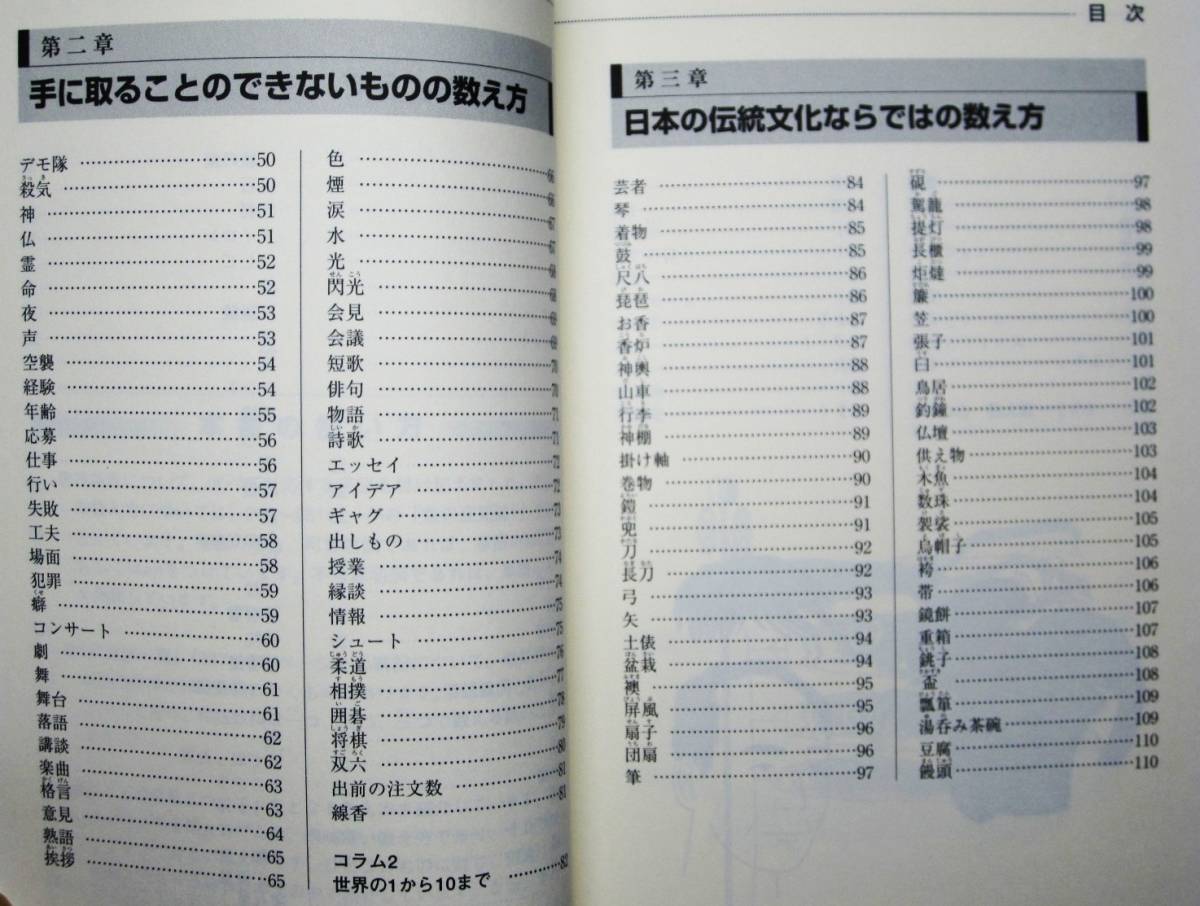 第二章
手に取ることのできないものの数え方
デモ隊 …… 50
殺気 …… 50
神 …… 51
仏 …… 51
霊 …… 52
命 …… 52
夜 …… 53
声 …… 53
空襲 …… 54
経験 …… 54
年齢 …… 55
応募 …… 56
仕事 …… 56
行い …… 57
失敗 …… 57
工夫 …… 58
場面 …… 58
犯罪 …… 59
癖 …… 59
コンサート …… 60
劇 …… 60
舞 …… 61
舞台 …… 61
落語 …… 62
講談 …… 62
楽曲 …… 63
格言 …… 63
意見 …… 64
熟語 …… 65
挨拶 …… 65
色 …… 66
煙 …… 66
涙 …… 67
水 …… 67
光 …… 68
閃光 …… 68
会見 …… 69
会議 …… 69
短歌 …… 70
俳句 …… 70
物語 …… 71
詩歌 …… 71
エッセイ …… 72
アイデア …… 72
ギャグ …… 73
出しもの …… 73
授業 …… 74
縁談 …… 74
情報 …… 75
シュート …… 75
柔道 …… 76
相撲 …… 77
囲碁 …… 78
将棋 …… 79
双六 …… 80
出前の注文数 …… 81
線香 …… 81
コラム2
世界の1から10まで …… 82
目次
第三章
日本の伝統文化ならではの数え方
芸者 …… 84
琴 …… 84
着物 …… 85
鼓 …… 85
尺八 …… 86
琵琶 …… 86
お香 …… 87
香炉 …… 87
神輿 …… 88
山車 …… 88
行李 …… 89
神棚 …… 89
掛け軸 …… 90
巻物 …… 90
鎧 …… 91
兜 …… 91
刀 …… 92
長刀 …… 92
弓 …… 93
矢 …… 93
土俵 …… 94
盆栽 …… 94
襖 …… 95
屏風 …… 95
扇子 …… 96
団扇 …… 96
筆 …… 97
硯 …… 97
駕籠 …… 98
提灯 …… 98
長櫃 …… 99
炬燵 …… 99
簾 …… 100
笠 …… 100
張子 …… 101
臼 …… 101
鳥居 …… 102
釣鐘 …… 102
仏壇 …… 103
供え物 …… 103
木魚 …… 104
数珠 …… 104
袈裟 …… 105
烏帽子 …… 105
袴 …… 106
帯 …… 106
鏡餅 …… 107
重箱 …… 107
銚子 …… 108
盃 …… 108
瓢箪 …… 109
湯呑み茶碗 …… 109
豆腐 …… 110
饅頭 …… 110